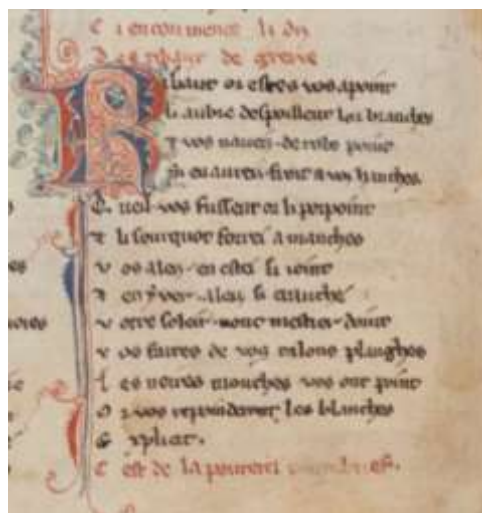 C i encoumence li diz
D es ribaux de greive
R ibaut or estes vos a point
Li aubre despoillent lor branches
E t vos naveiz de robe point
Si en aureiz froit a voz hanches
Q ueil vos fussent or li porpoint
E t li seurquot forrei a manches
V os aleiz en estei si joint
E t en yver aleiz si cranche
V otre soleir nont mestier doint
V os faites de vos talons planches
L es noires mouches vos ont point
O r vos repoinderont les blanches
E xplicit.
C est de la povretei